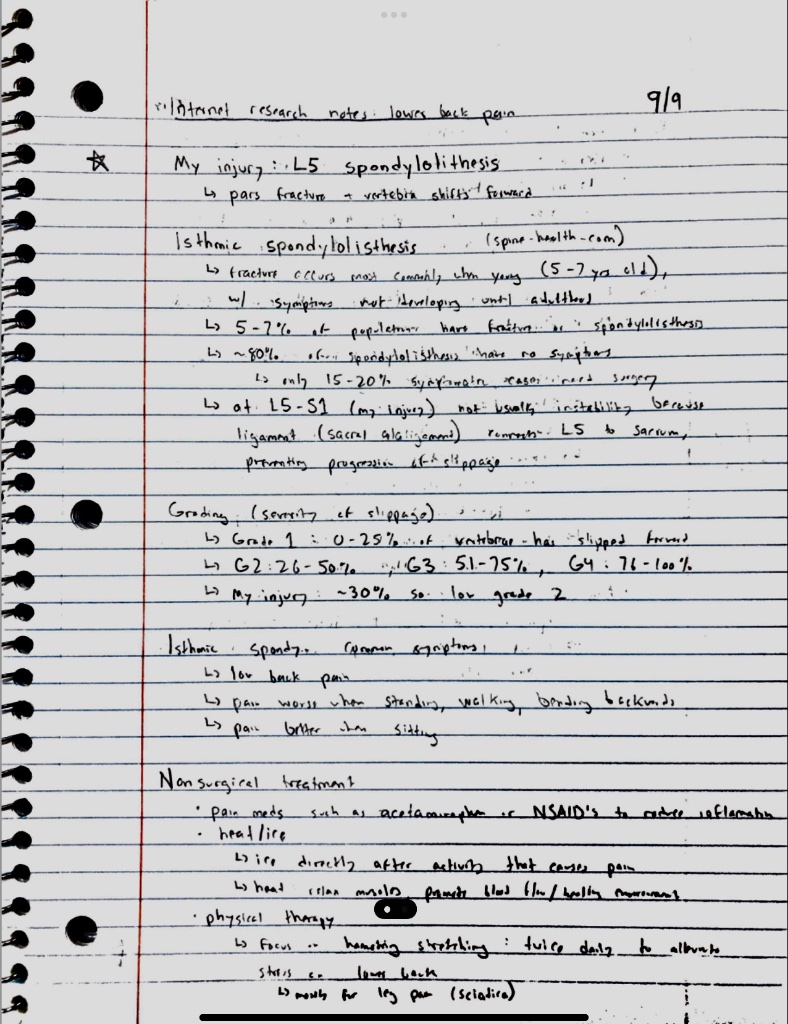 Internet research notes: lower back pain 9/9
My injury: L5 spondylolithesis
↳ pars fracture + vertebra shifts forward
Isthmic spondylolisthesis (spine-health-com)
↳ fracture occurs most commonly when young (5-7 yrs old),
w/ symptoms not developing until adulthood
↳ 5-7% of population have fracture or spondylolisthesis
↳ ~80% of spondylolisthesis have no symptoms
↳ only 15-20% symptomatic need surgery
↳ at L5-S1 (my injury) not usually instability because
ligament (sacral) connects L5 to sacrum,
preventing progression of slippage
Grading (severity of slippage)
↳ Grade 1: 0-25% of vertebrae has slipped forward
↳ G2: 26-50%, G3: 51-75%, G4: 76-100%
↳ My injury: ~30% so low grade 2
Isthmic spondy. common symptoms:
↳ low back pain
↳ pain worse when standing, walking, bending backwards
↳ pain better when sitting
Nonsurgical treatment
• pain meds such as acetaminophen or NSAID's to reduce inflamation
• head/ice
↳ ice directly after activity that causes pain
↳ head relax muscles, promote blood flow/healing
• physical therapy
↳ Focus on hamstring stretching: twice daily to alleviate
stress on lower back
↳ mostly for leg pain (sciadica)